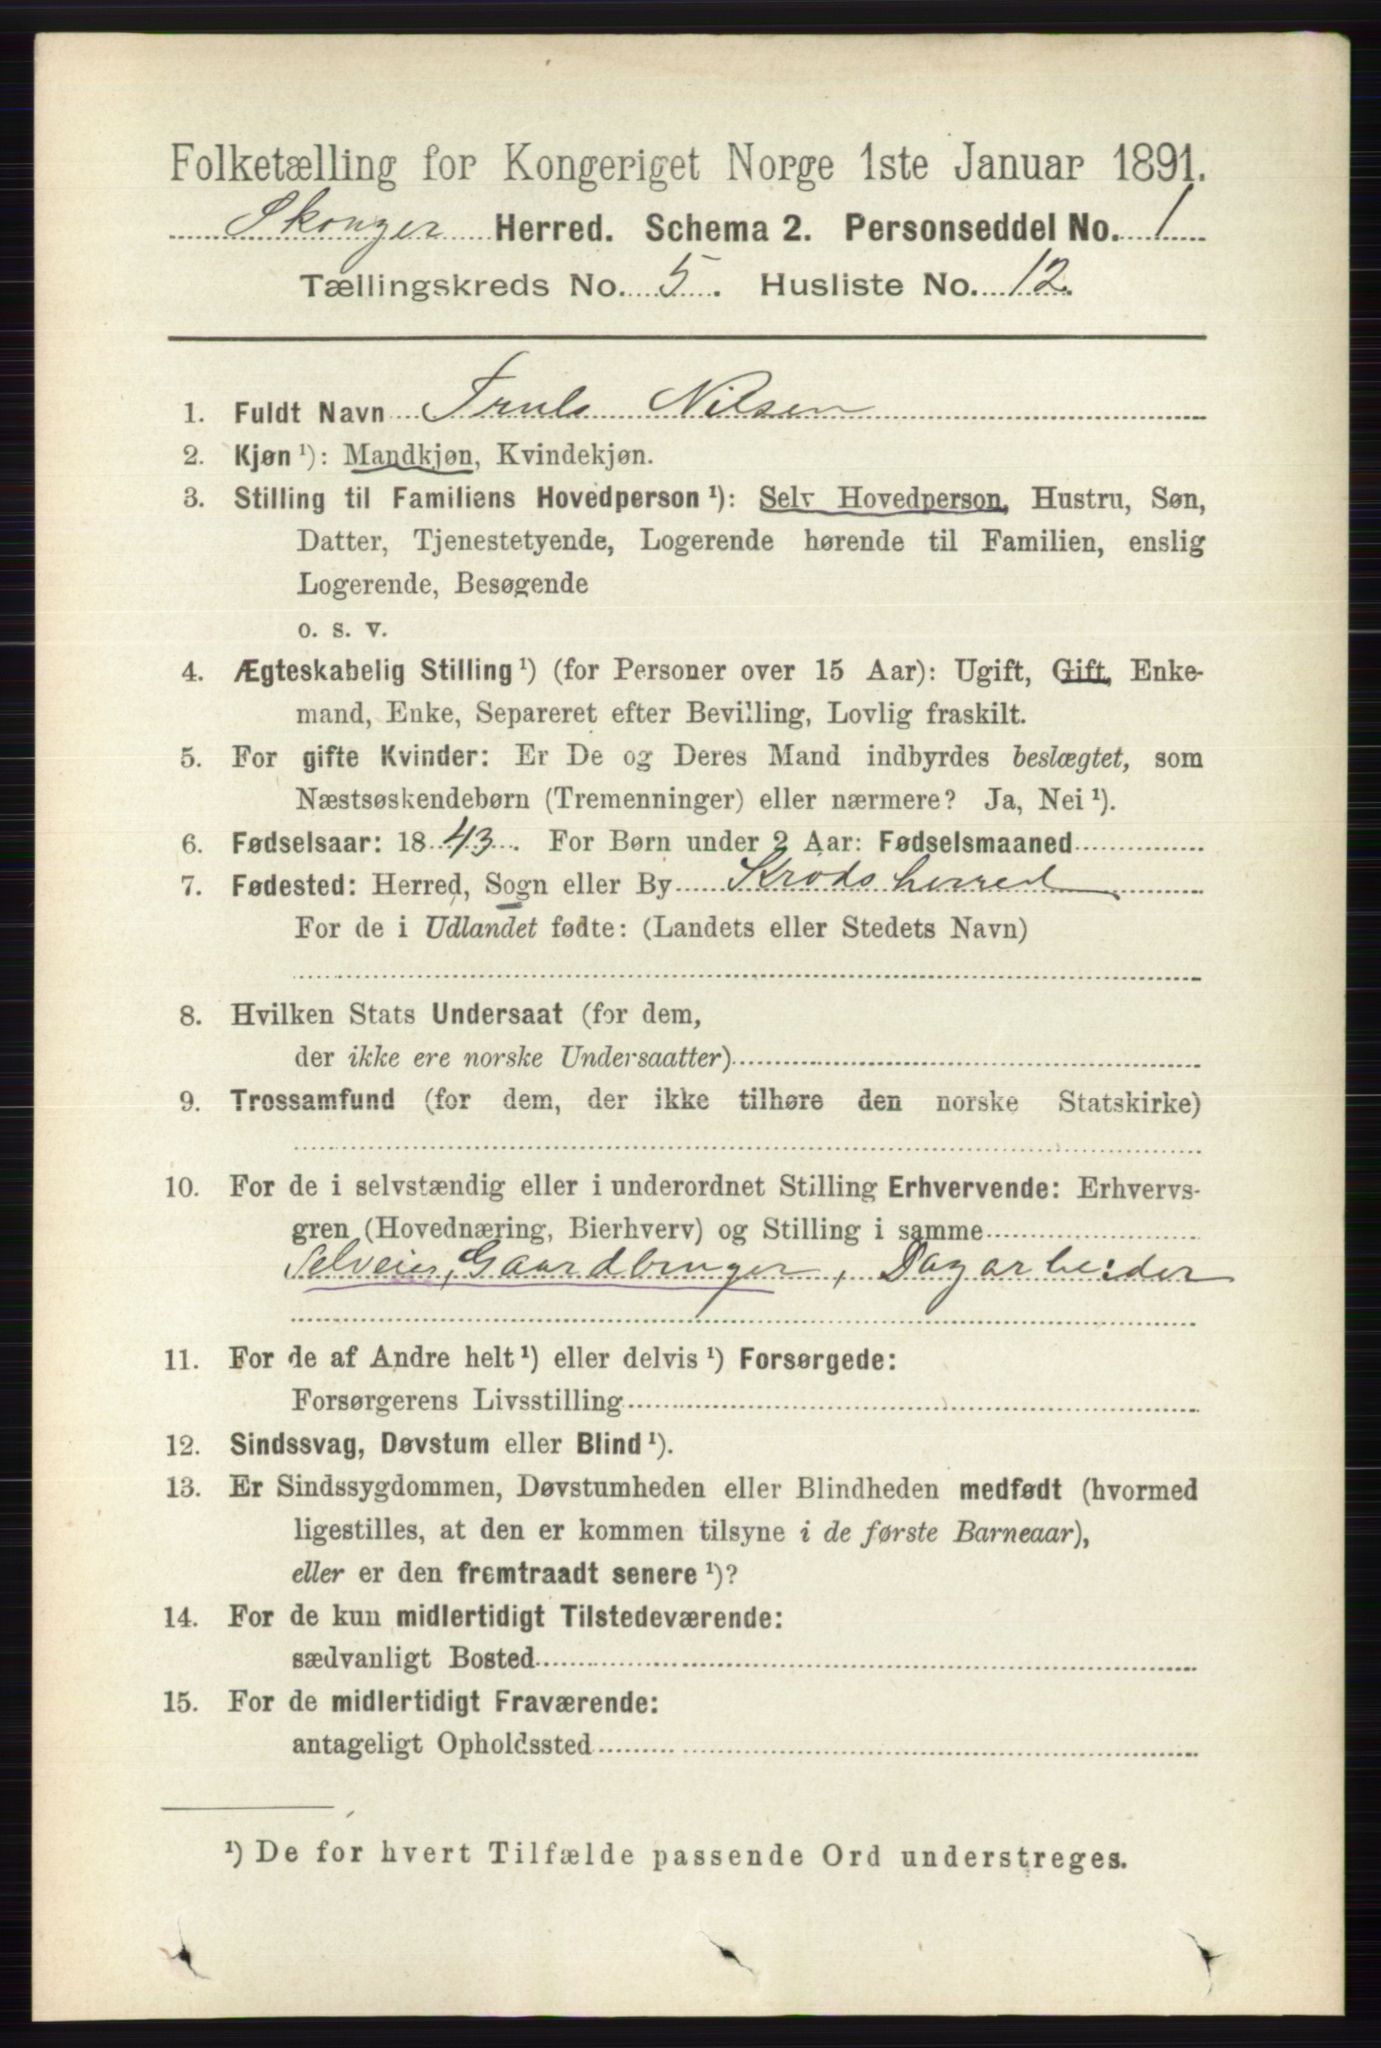 Folketælling for Kongeriget Norge 1ste Januar 1891.
Skouger Herred. Schema 2. Personseddel No. 1
Tællingskreds No. 5. Husliste No. 12.
1. Fuldt Navn Truls Nilsen
2. Kjøn¹): Mandkjøn, Kvindekjøn.
3. Stilling til Familiens Hovedperson¹): Selv Hovedperson, Hustru, Søn,
Datter, Tjenestetyende, Logerende hørende til Familien, enslig
Logerende, Besøgende
o. s. v.
4. Ægteskabelig Stilling¹) (for Personer over 15 Aar): Ugift, Gift, Enke-
mand, Enke, Separeret efter Bevilling, Lovlig fraskilt.
5. For gifte Kvinder: Er De og Deres Mand indbyrdes beslægtet, som
Næstsøskendebørn (Tremenninger) eller nærmere? Ja, Nei¹).
6. Fødselsaar: 1843. For Børn under 2 Aar: Fødselsmaaned
7. Fødested: Herred, Sogn eller By Krødsherred
For de i Udlandet fødte: (Landets eller Stedets Navn)
8. Hvilken Stats Undersaat (for dem,
der ikke ere norske Undersaatter)
9. Trossamfund (for dem, der ikke tilhøre den norske Statskirke)
10. For de i selvstændig eller i underordnet Stilling Erhvervende: Erhvervs-
gren (Hovednæring, Bierhverv) og Stilling i samme
Selveier, Gaardbruger, Dagarbeider
11. For de af Andre helt¹) eller delvis¹) Forsørgede:
Forsørgerens Livsstilling
12. Sindssvag, Døvstum eller Blind¹).
13. Er Sindssygdommen, Døvstumheden eller Blindheden medfødt (hvormed
ligestilles, at den er kommen tilsyne i de første Barneaar),
eller er den fremtraadt senere¹)?
14. For de kun midlertidigt Tilstedeværende:
sædvanligt Bosted
15. For de midlertidigt Fraværende:
antageligt Opholdssted
¹) De for hvert Tilfælde passende Ord understreges.